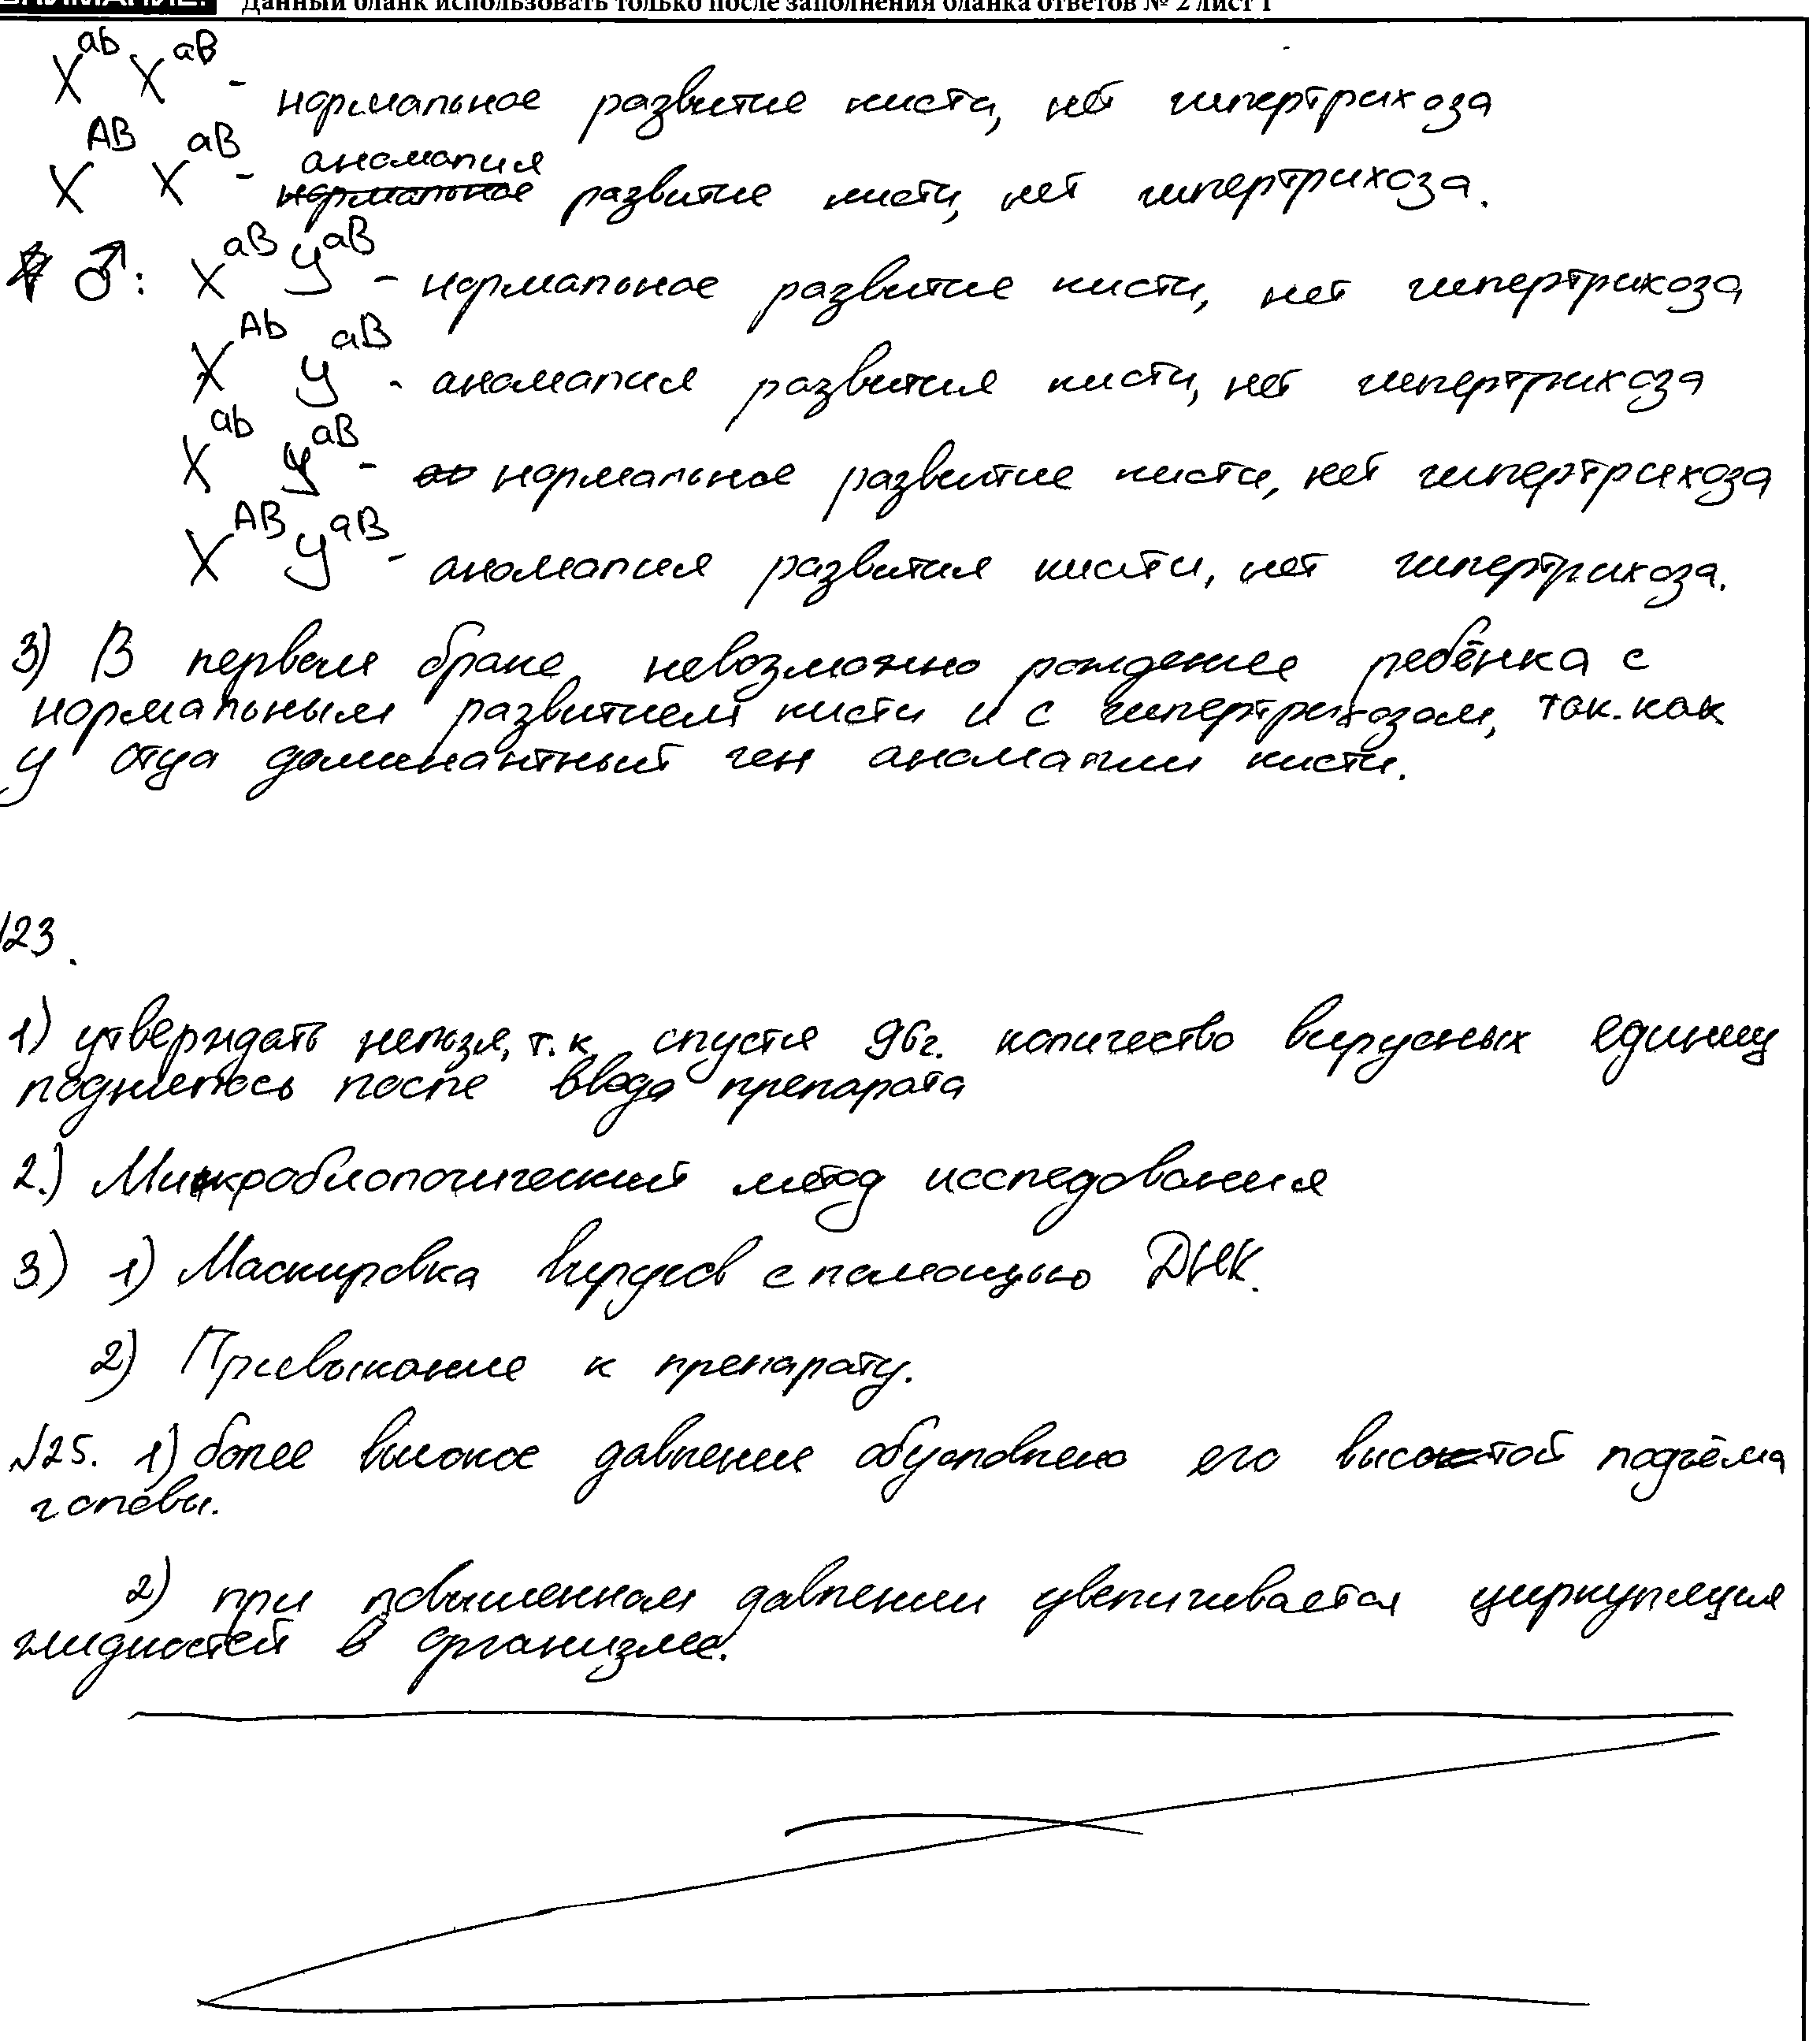 ВНИМАНИЕ! Данный бланк использовать только после заполнения бланка ответов № 2 лист 1
X^ab X^aB - нормальное развитие кисти, нет гипертрихоза
X^AB X^aB - аномалия нормальное развитие кисти, нет гипертрихоза.
♂: X^aB У^aB - нормальное развитие кисти, нет гипертрихоза
X^Ab У^aB - аномалия развития кисти, нет гипертрихоза
X^ab У^aB - нормальное развитие кисти, нет гипертрихоза
X^AB У^aB - аномалия развития кисти, нет гипертрихоза.
3) В первом браке невозможно рождение ребёнка с
нормальным развитием кисти и с гипертрихозом, так.как
у отца доминантный ген аномалии кисти.
№23.
1) утверждать нельзя, т.к спустя 96г. количество вирусных единиц
поднялось после ввода препарата
2.) Микробиологический метод исследования
3) 1) Маскировка вирусов с помощью ДНК.
2) Привыкание к препарату.
№25. 1) более высокое давление обусловлено его высотой подъёма
головы.
2) при повышенном давлении увеличивается циркуляция
жидкостей в организме.